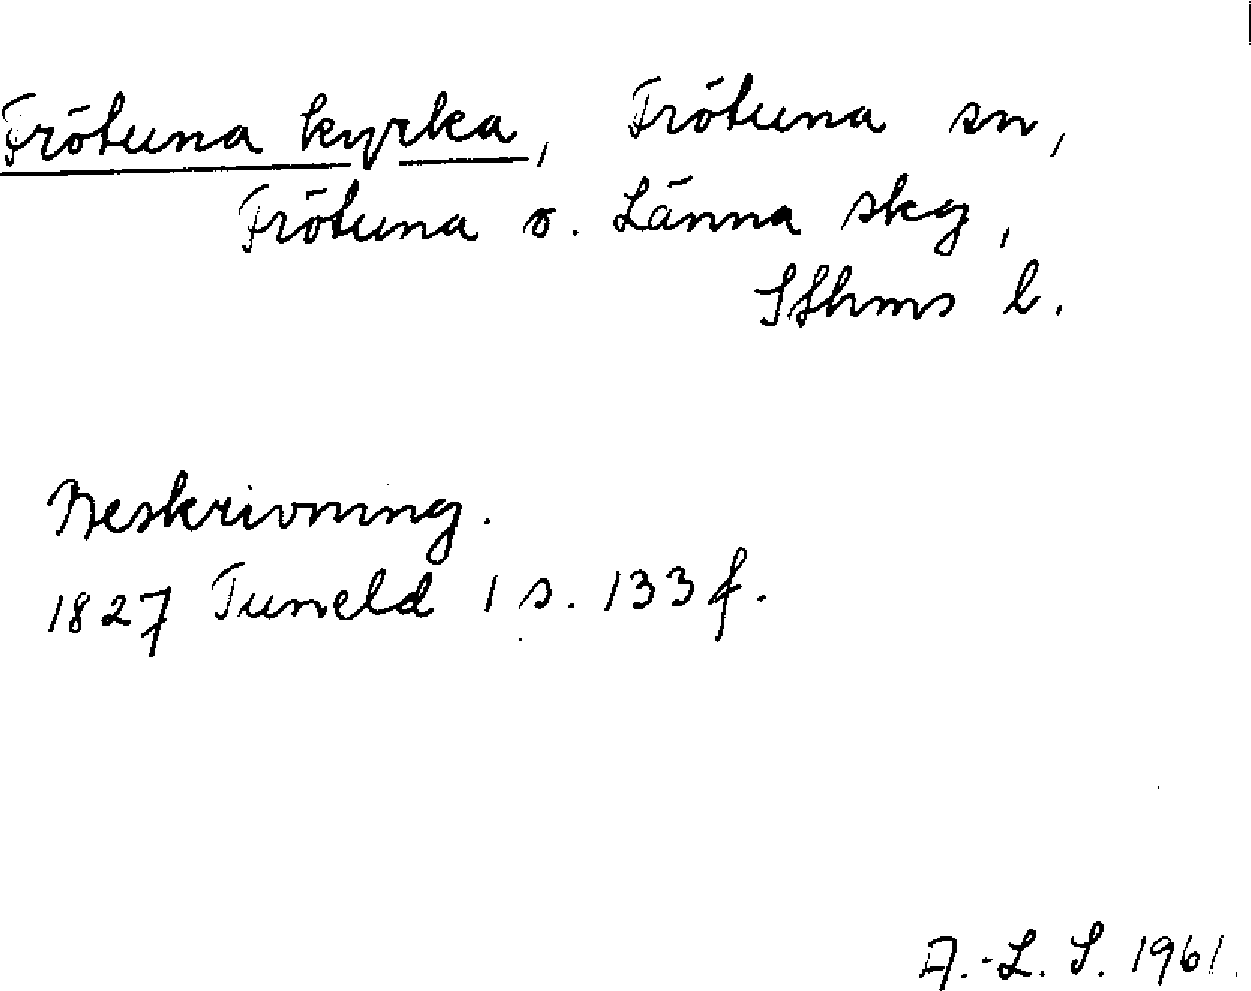 Frötuna kyrka, Frötuna sn,
Frötuna o. Länna skg,
Sthms l.
Beskrivning.
1827 Tuneld 1 s. 133 f.
A.-L. S. 1961.